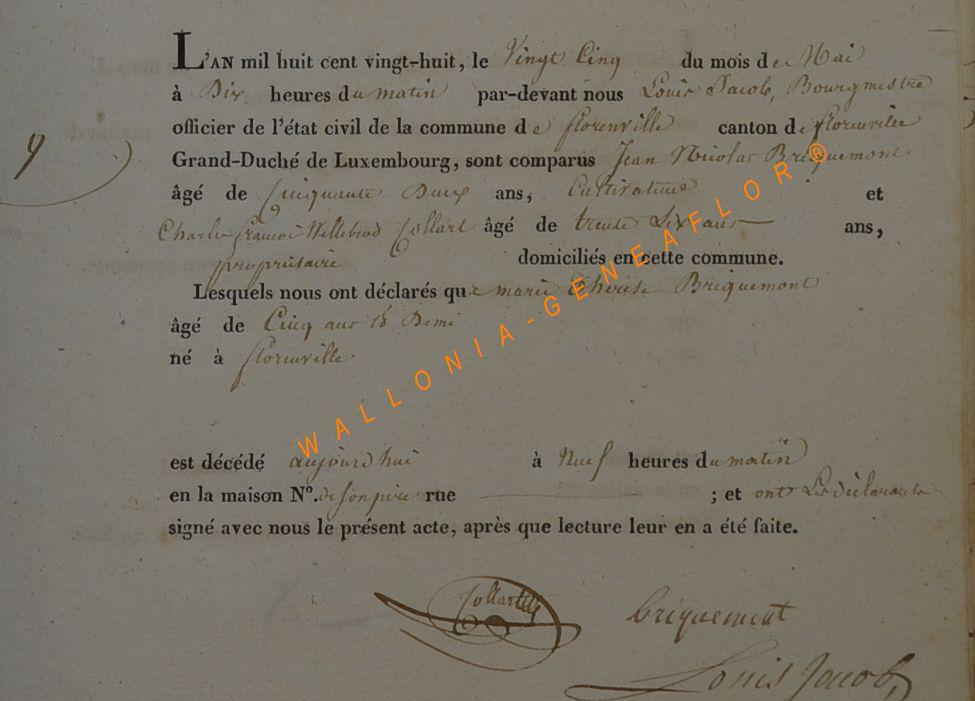 L'AN mil huit cent vingt-huit, le Vingt Cinq du mois de Mai
à Dix heures du matin par-devant nous Louis Jacob, Bourgmestre
officier de l'état civil de la commune de florenville canton de florenville
Grand-Duché de Luxembourg, sont comparus Jean Nicolas Briquemont
9
âgé de Cinquante Deux ans, Cultivateur et
Charle françois Willebrod Collart âgé de trente Six ans ans,
propriétaire domiciliés en cette commune.
Lesquels nous ont déclarés que marie Thérèse Briquemont
âgé de Cinq ans & Demi
né à florenville
est décédé aujourd'hui à Neuf heures du matin
en la maison N°. de son père rue ; et ont Les déclarants
signé avec nous le présent acte, après que lecture leur en a été faite.
Collart briquemont
Louis Jacob,
WALLONIA-GENEAFLOR®